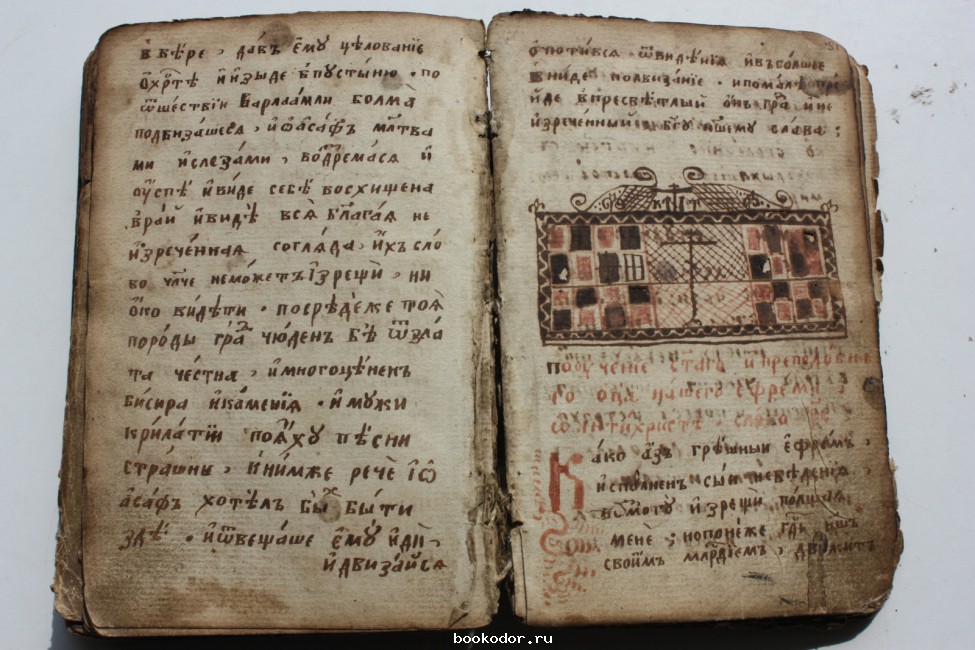 в вѣ́ре, да́въ є҆мꙋ̀ цѣлова́нїє
ѡ҆ хрⷭ҇тѣ̀ и҆ и҆зы́де в пꙋсты́ню · по
ѿше́ствїи варлаа́мли бо́лма
подвиза́шесѧ, и҆ѡаса́фъ мл҃тва
ми и҆ слеза́ми, воздрема́сѧ и҆
ᲂу҆спѐ и҆ ви́де себѐ восхи́щена
в ра́й и҆ ви́дѣ всѧ̑ бл҃га́ѧ не
и҆зрече́ннаѧ соглѧ́да, и҆́хъ сло́
во чл҃че не мо́жетъ и҆зрещѝ, ни
ѻ҆́ко ви́дѣти · посрѣдѣ́же тоѧ̀
поро́ды гра́дъ чю́денъ бѣ̀ ѿ зла́
та че́стна, и҆ многоцѣ́ненъ
би́сира и҆ ка́менїѧ · и҆ мꙋ́жи
крила́тїи поѧ́хꙋ пѣ́сни
стра́шны, к ни́мже речѐ і҆ѡ
аса́фъ хотѣ́лъ бы̀ бы́ти
здѣ̀ · и҆ ѿвеща́ше є҆мꙋ̀ и҆дѝ,
и҆ двиза́йсѧ
ѿ виде́нїѧ и҆ въ бо́лшее
вни́де подвиза́нїе · и҆ пома́лѣ пре
и҆́де в пресвѣ́тлый ѻ҆́нъ гра́дъ и҆ не
и҆зрече́нный, бг҃ꙋ на́шемꙋ сла́ва:
поꙋче́нїе ст҃а́гѡ и҆ преподо́бна
го ѻ҆ц҃а̀ на́шего є҆фре́ма,
ѡ҆ а҆нтихри́стѣ, сло́во
Ка́ко а҆́зъ грѣ́шный є҆фре́мъ,
и҆спо́лненъ сы́и неве́денїѧ,
возмогꙋ̀ и҆зрещѝ
менѐ; но поне́же гд҃ь на́шъ
свои́мъ мл҃рдїемъ,
bookodor.ru